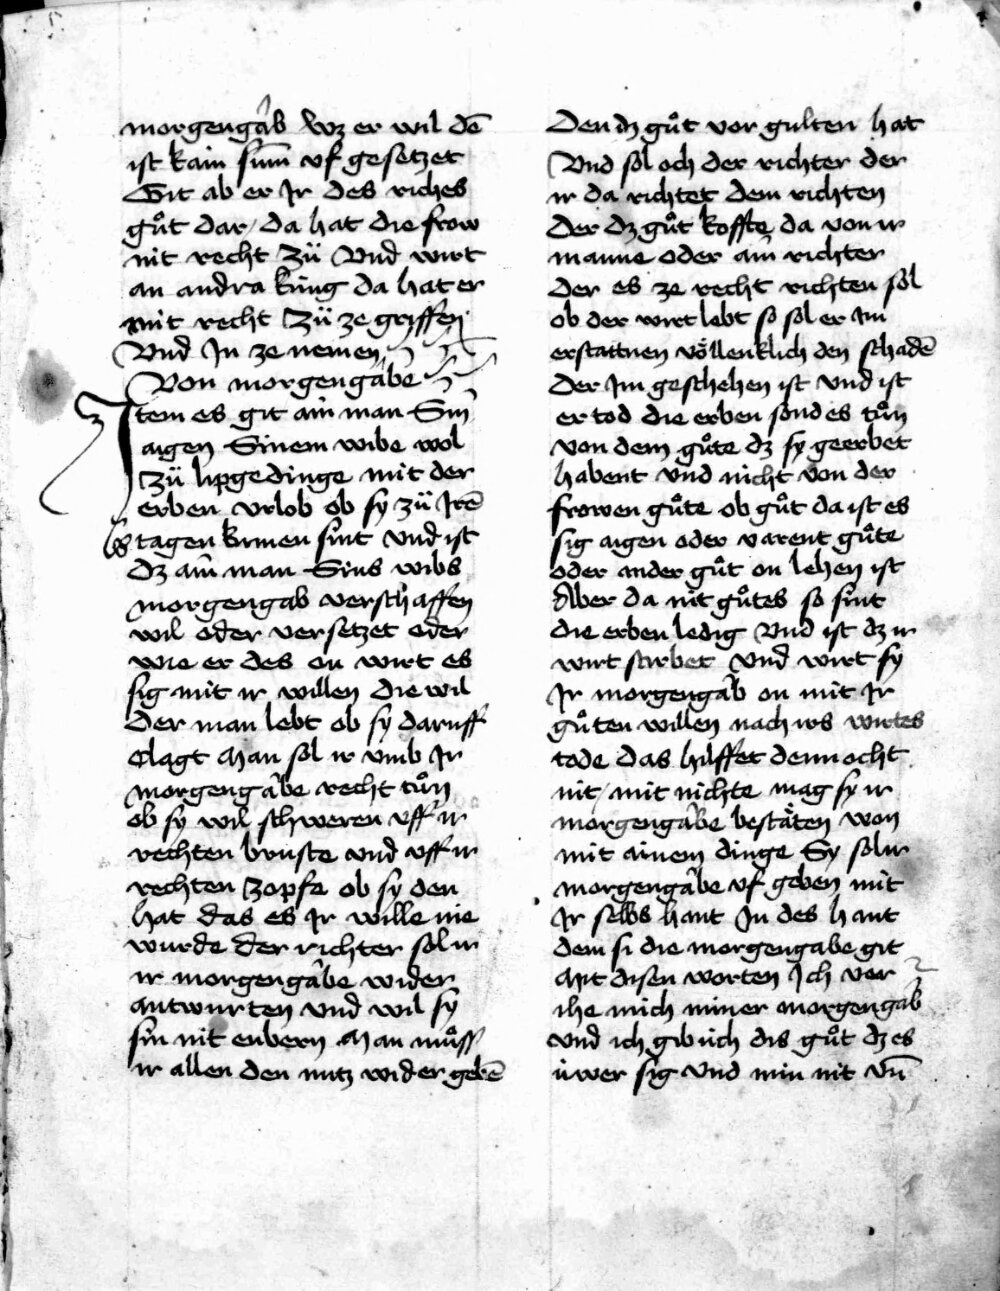 morgengâb Wz er wil dē
ist kain sum̄ vf gesetzet
Git ab er Ir des riches
gůt dar / da hat die frow
nit recht zü Vnd wirt
an andra küng da hat er
mit recht zü ze gryffen
Vnd In ze nemen
Von morgengâbe
Item es git ain man Sin
aigen Sinem wibe wol
zü lipgedinge mit der
erben vrlob ob sy zü Irē
tagen kumen sint vnd ist
dz ain man Sins wibs
morgengab verschaffen
wil oder versetzet oder
wie er des on wirt es
sig mit ir willen die wil
Der man lebt ob sy daruff
Clagt Man sol ir vmb Ir
morgengâbe recht tůn
ob sy wil schweren vff ir
rechten bruste vnd vff ir
rechten zopfe ob sy den
hat das es Ir wille nie
wurde der richter sol ir
ir morgengâbe wider
antwurten vnd wil sy
sin nit enbern Man můss
ir allen den nutz wider gebē
Den dz gůt vor gulten hat
Vnd sol och der richter der
ir da richtet dem richten
Der dz gůt koffte da von ir
manne oder ain richter
der es ze recht richten sol
ob der wirt lebt so sol er Im
erstattnen völlenklich den schadē
Der Im geschehen ist vnd ist
er tod die erben sond es tůn
von dem gůte dz sy geerbet
habent vnd nicht von der
frowen gůte ob gůt da ist es
sig aigen oder varent gůte
oder ander gůt on lehen ist
Aber da nit gůtes so sint
die erben ledig Vnd ist dz ir
wirt stirbet Vnd wirt sy
Ir morgengâb on mit Ir
gůten willen nach irs wirtes
tode das hilffet dennocht
nit / mit nichte mag sy ir
morgengâbe bestäten won
mit ainem dinge Sy sol ir
morgengâbe vf geben mit
Ir selbs hant In des hant
dem si die morgengabe git
Mit disen worten Ich ver
ihe mich miner morgengâb
vnd ich gib üch dis gůt dz es
üwer sig vnd min nit vn̄